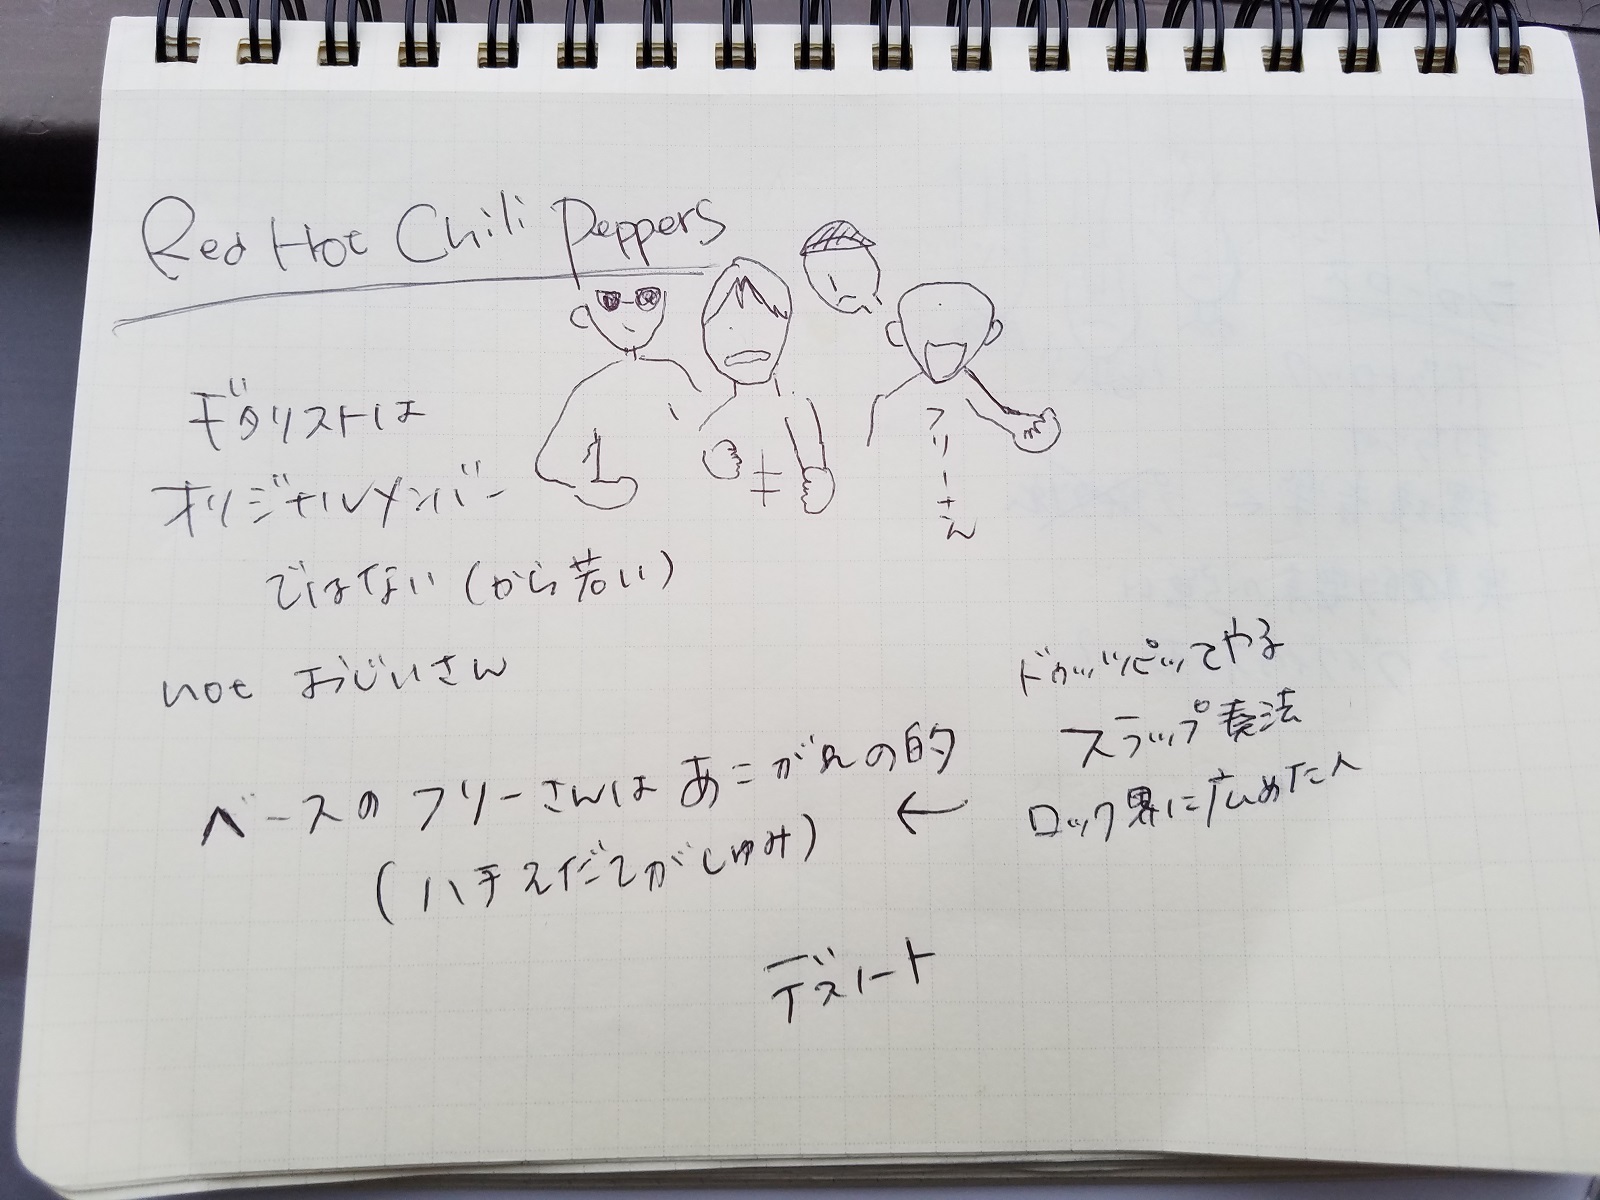 Red Hot Chili Peppers
ギタリストは
オリジナルメンバー
ではない(から若い)
not おじいさん
キ
フリーさん
ドゥッッピッてやる
スラップ奏法
ロック界に広めた人
←
ベースのフリーさんはあこがれの的
(ハチえだてがしゅみ)
デスノート